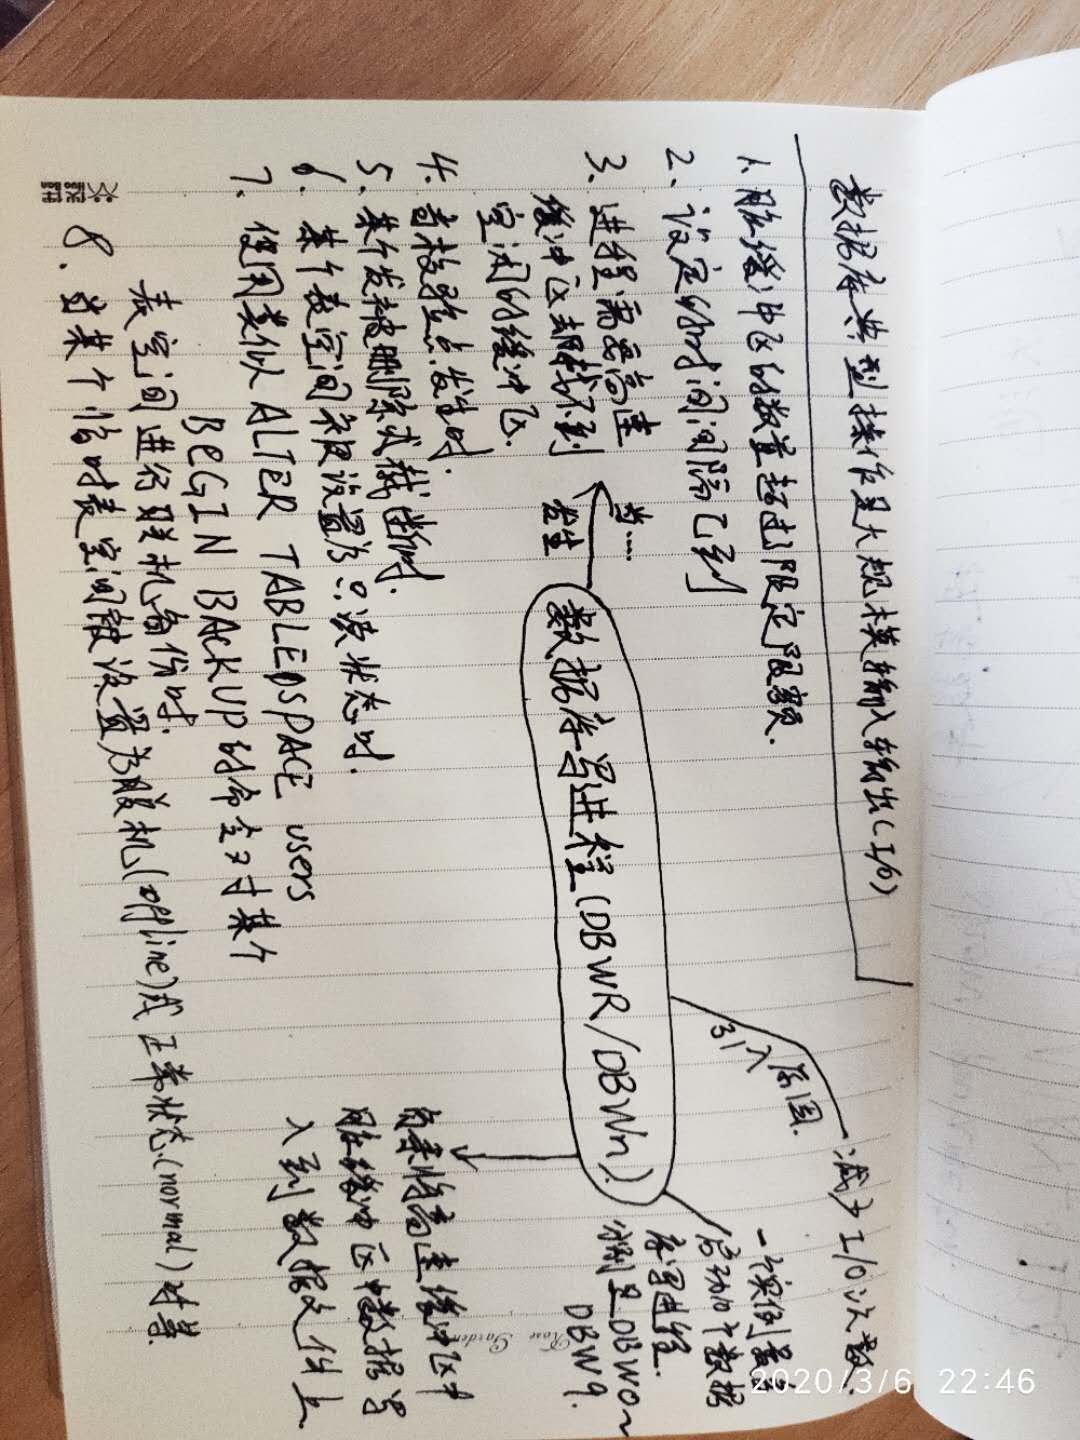 数据库典型操作是大规模输入输出(I/O)
1. 脏缓冲区的数量超过限定限额.
2. 设定的时间间隔已到
3. 进程需要高速
缓冲区却找不到
空闲的缓冲区.
4. 当校验点发生时.
5. 某个表被删除或截断时.
6. 某个表空间被设置为只读状态时.
7. 使用类似 ALTER TABLEDSPACE users
BEGIN BACKUP 的命令对某个
表空间进行联机备份时.
8. 当某个临时表空间被设置为脱机(offline)或正常状态(normal)时等
当……
发生
数据库写进程(DBWR/DBWn).
引入原因.
减少I/O次数.
一个实例最多
启动10个数据
库写进程.
分别是DBW0~
DBW9.
负责将高速缓冲区中
脏缓冲区中数据写
入到数据文件上
Rose Garden
2020/3/6 22:46